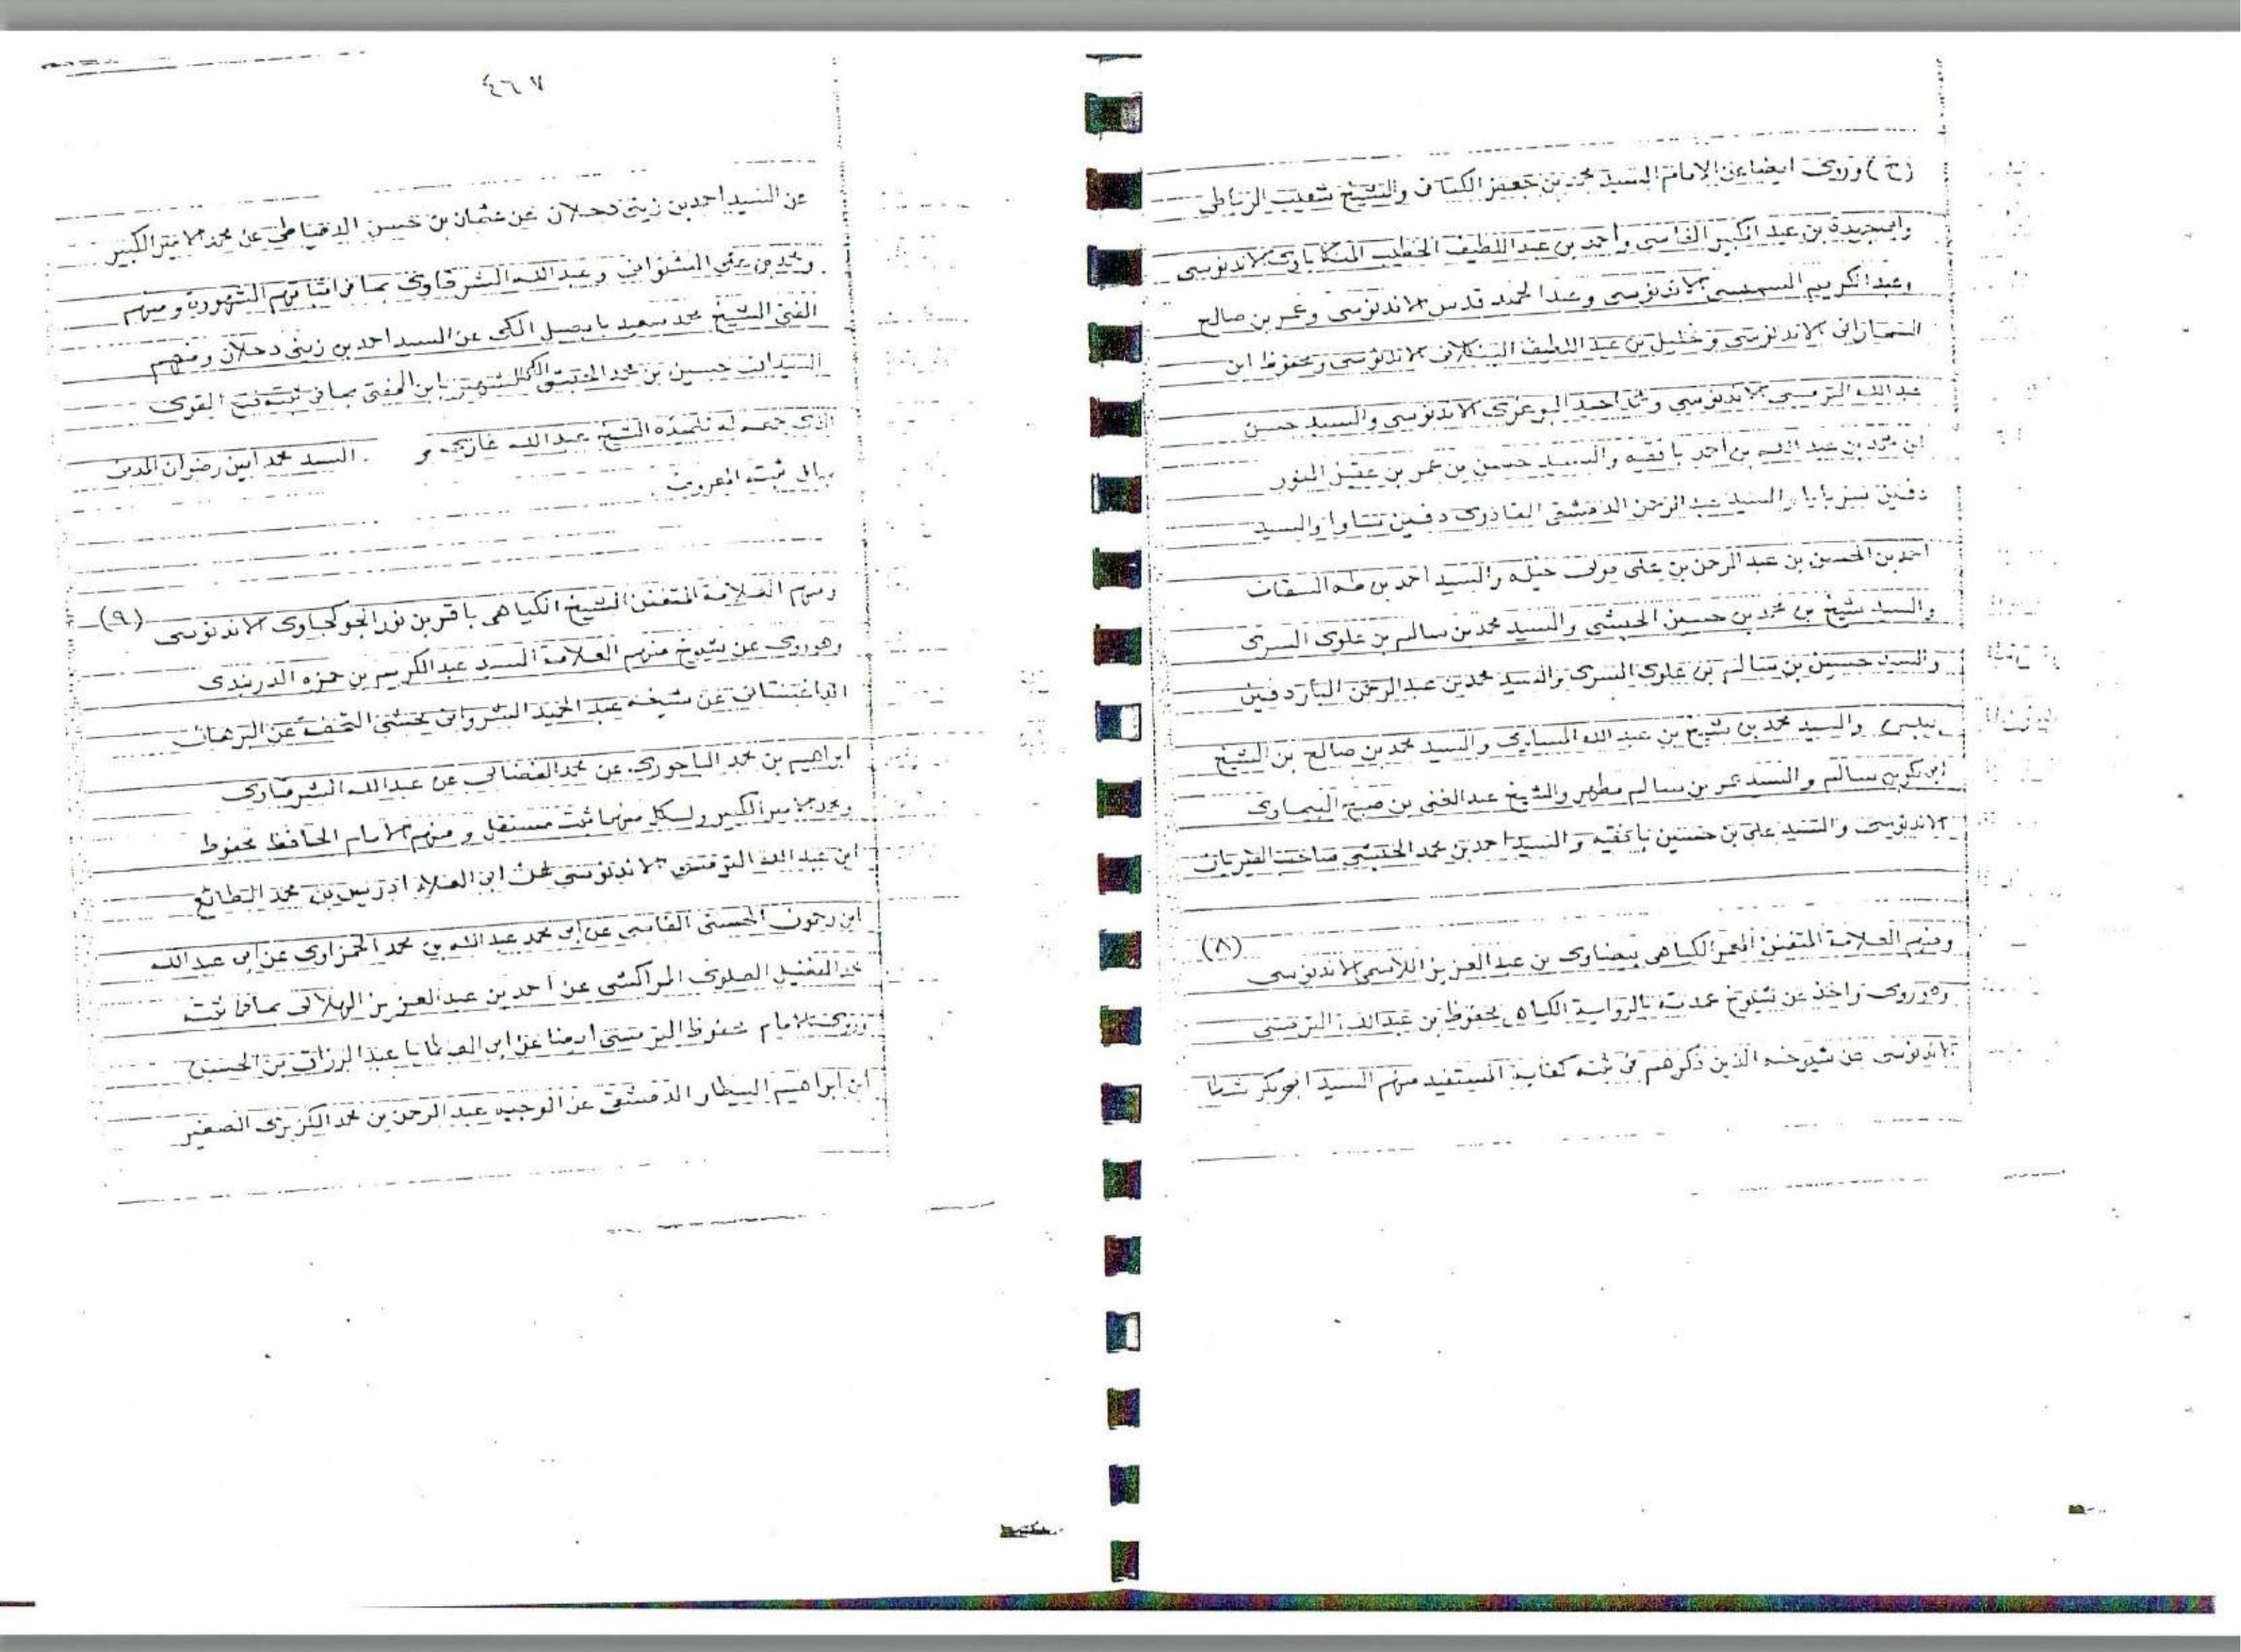 (ح) وروى ايضا عن الامام السيد محمد بن جعفر الكتاني والشيخ شعيب
وابي جيدة بن عبد الكبير الفاسي واحمد بن عبد اللطيف الخطيب المنكاباوى الاندنوسى
وعبد الكريم السمبسي الاندنوسى وعبد الحميد قدس الاندنوسى وعمر بن صالح
السماراني الاندنوسى وخليل بن عبد اللطيف البنكلاني الاندنوسى ومحفوظ ابن
عبد الله الترمسي الاندنوسي و احمد الاندنوسى والسيد حسن
ابن محمد بن عبد الله بن احمد بافقيه والسيد حسين بن عمر بن عقيل المنور
دفين سربايا والسيد عبد الرحمن الدمشقى القادرى دفين والسيد
احمد بن الحسين بن عبد الرحمن بن على مولى خيله والسيد احمد بن طه السقاف
والسيد شيخ بن محمد بن حسين الحبشي والسيد محمد بن سالم بن علوى السرى
والسيد حسين بن سالم بن علوى السرى والسيد محمد بن عبد الرحمن البار دفين
والسيد محمد بن شيخ بن عبد الله المساوى والسيد محمد بن صالح بن الشيخ
ابي بكر بن سالم والسيد عمر بن سالم مطهر والشيخ عبد الغني بن صبح البيماوى
الاندنوسى والسيد على بن حسين بافقيه والسيد احمد بن محمد الحبشي صاحب
(٨) ومنهم العلامة المتفنن المعمر الكياهى بيضاوى بن عبد العزيز اللاسمى الاندنوسى
وهو روى واخذ عن شيوخ عمدته بالرواية الكياهى محفوظ بن عبد الله الترمسى
الاندنوسى عن شيوخه الذين ذكرهم في ثبته كفاية المستفيد منهم السيد ابو بكر شطا
٤٦٧
عن السيد احمد بن زينى دحلان عن عثمان بن حسن الدمياطى عن محمد الامير الكبير
ومحمد بن علي الشنواني وعبد الله الشرقاوى بما في اثباتهم الشهورة ومنهم
الفقيه الشيخ محمد سعيد بابصيل المكى عن السيد احمد بن زينى دحلان ومنهم
السيد حسين بن محمد الحبشى المكى الشهير بابن المفتى بما في ثبته فتح القوى
الذى جمعه له تلميذه الشيخ عبد الله غازى و السيد محمد امين رضوان المدنى
ثبته المعروف
(٩) ومنهم العلامة المتفنن الشيخ الكياهى باقر بن نور الجوكجاوى الاندنوسى
وهو روى عن شيوخ منهم العلامة السيد عبد الكريم بن حمزه الدربندى
الداغستانى عن شيخه عبد الحميد الشرواني محشى التحفة عن البرهان
ابراهيم بن محمد الباجورى عن محمد الفضالى عن عبد الله الشرقاوى
ومحمد الامير الكبير ولكل منهما ثبت مستقل ومنهم الامام الحافظ محفوظ
ابن عبد الله الترمسى الاندنوسي عن ابى العلاء ادريس بن محمد الطائع
ابن رحمون الحسنى الفاسى عن ابى محمد عبد الله بن محمد الحمزاوى عن ابى عبد الله
المراكشى عن احمد بن عبد العزيز الهلالى بما في ثبته
وروى الامام محفوظ الترمسى ايضا عن ابى العطايا عبد الرزاق بن الحسن
ابن ابراهيم البيطار الدمشقى عن الوجيه عبد الرحمن بن محمد الكزبرى الصغير